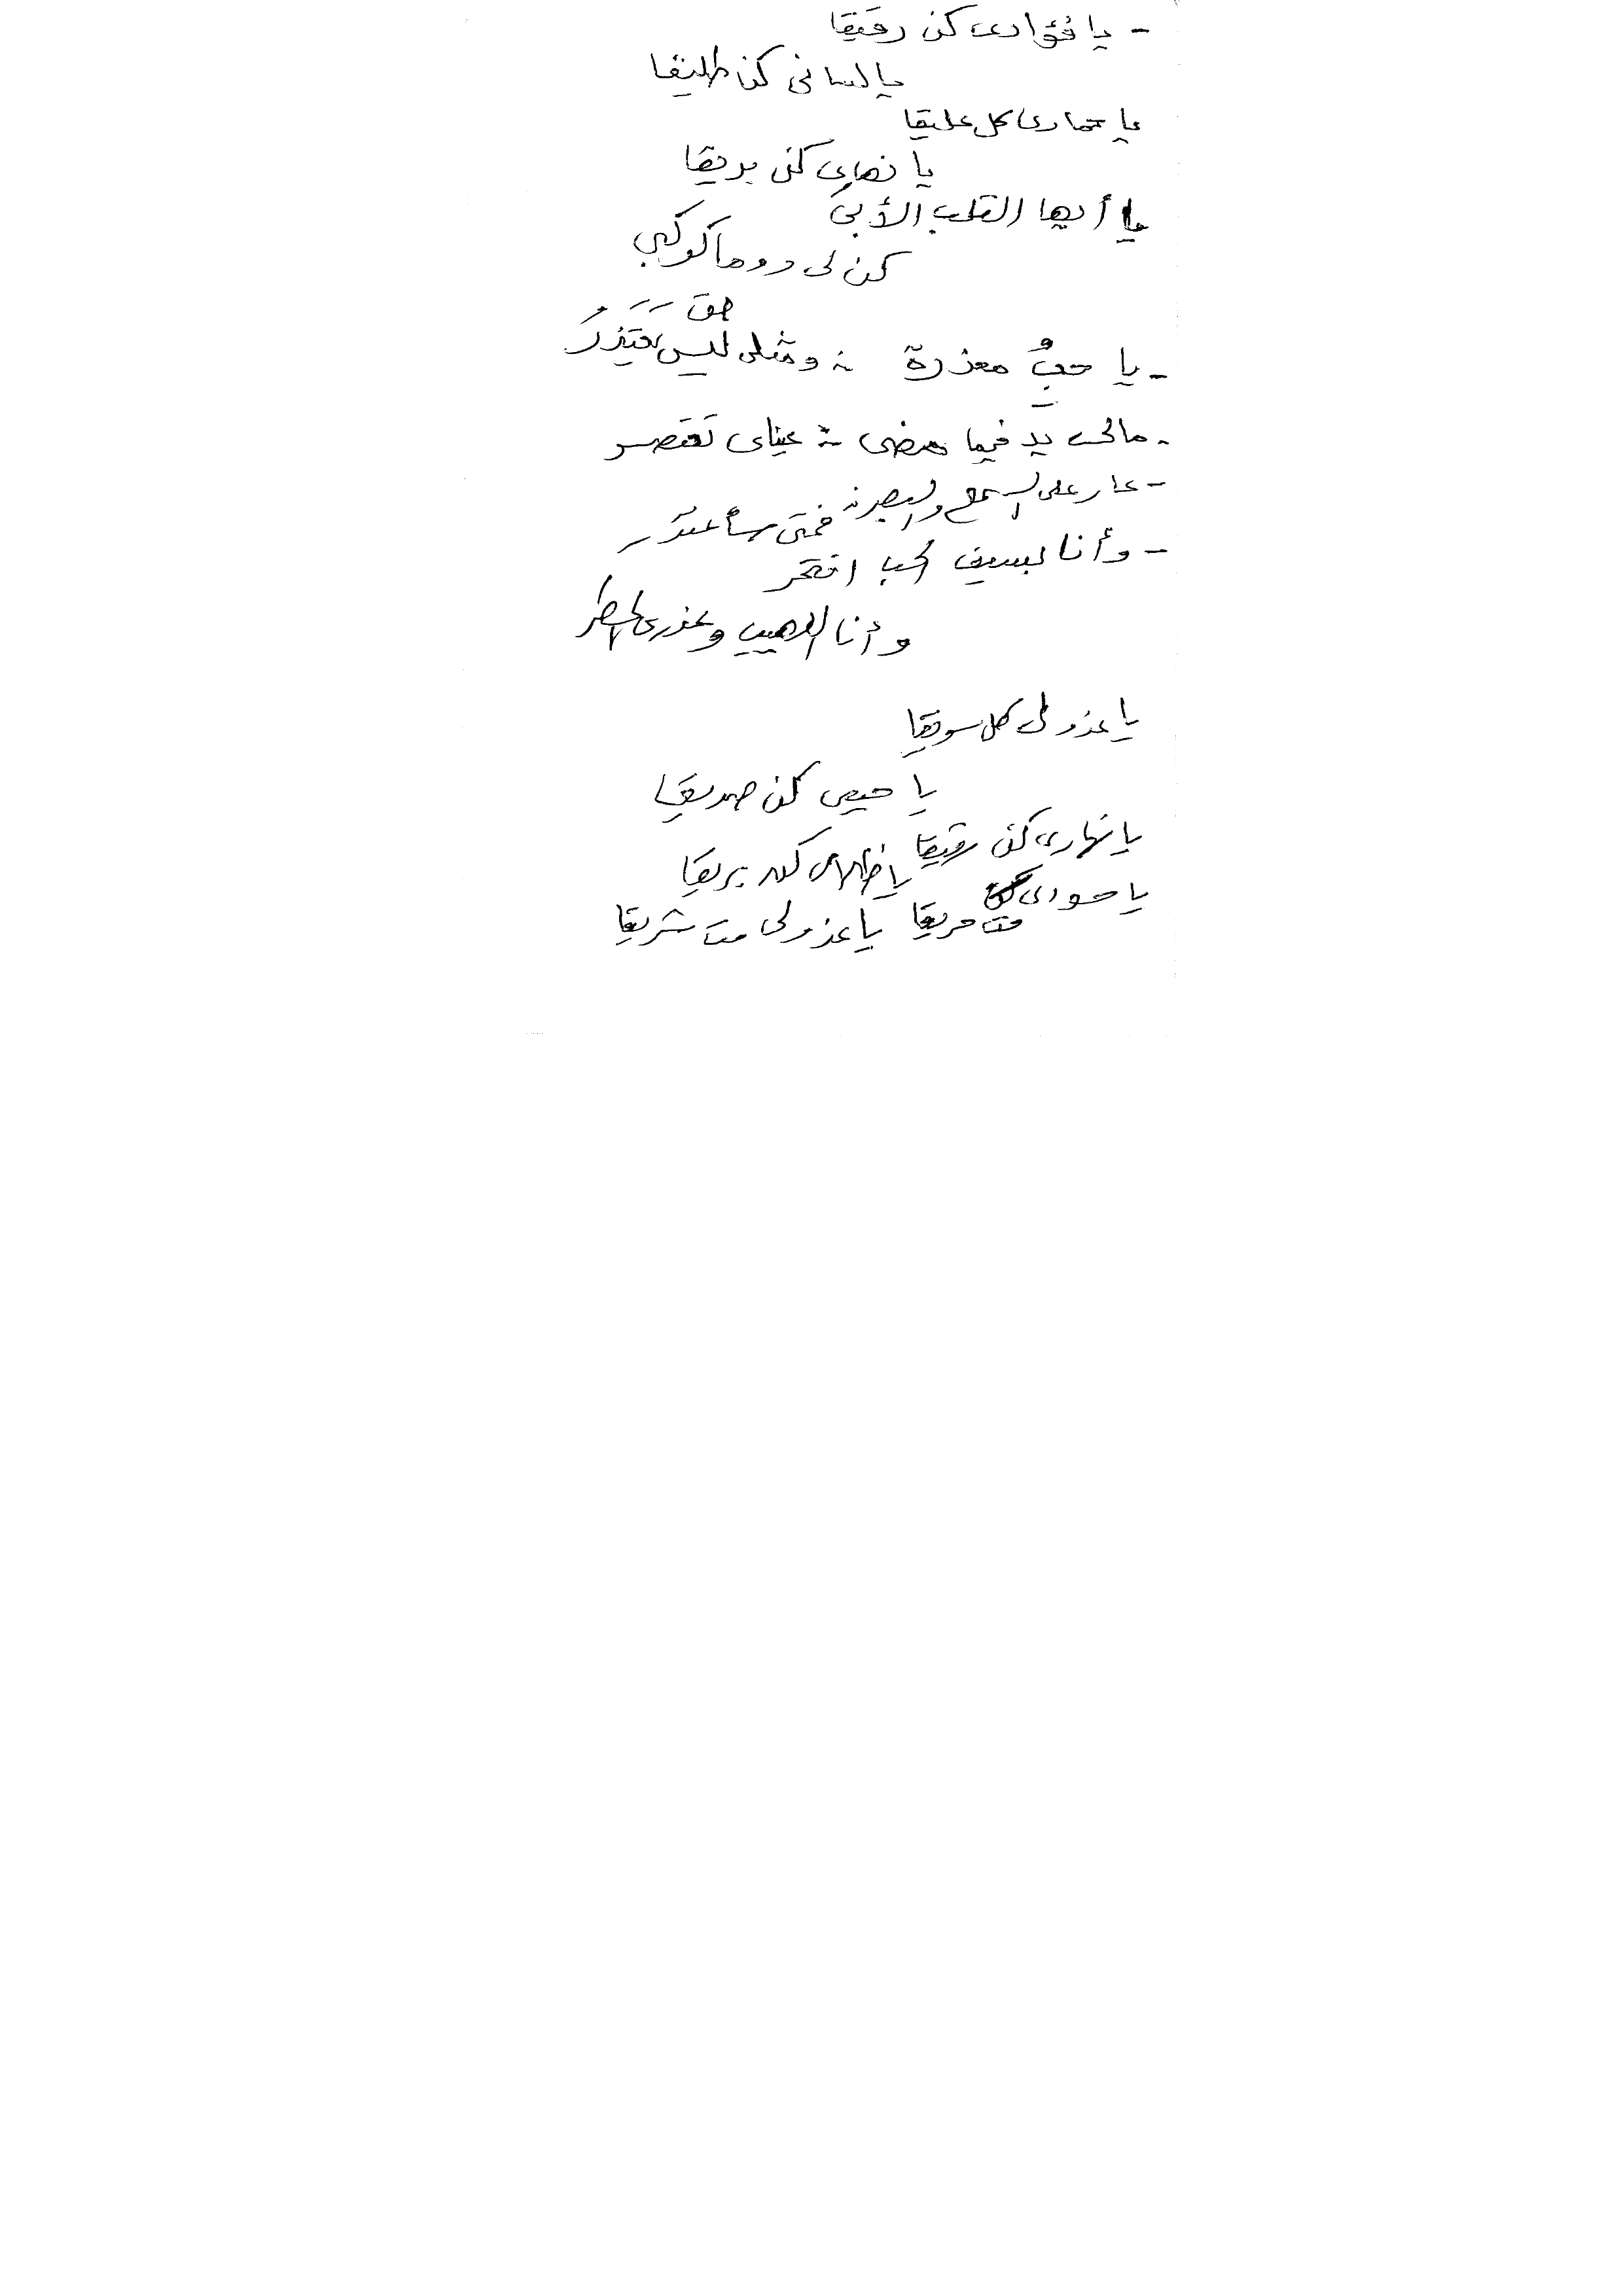 - يا فؤادى كن رقيقا
يا لسانى كن طليقا
يا حمارى كل عليقا
يا نهارى كن بريقا
يا أيها القلب الأبى
كن لى دوما كوكبى
حق
- يا حبُ معذرة ؛ ومثلى ليس يعتذرُ
- مالى يد فيما مضى ؛ عيناى تقتصر
- عار على السمع والبصر ؛ فمتى سأعتذر
- وأنا بسيف الحب افتخر
وأنا اللهيب وعذرى المطر
يا عذولى كل سويقا
يا حبيبى كن صديقا
يا نهارى كن رقيقا يا ظلامى كن بريقا
يا حسودى مت حريقا يا عذولى مت شريقا